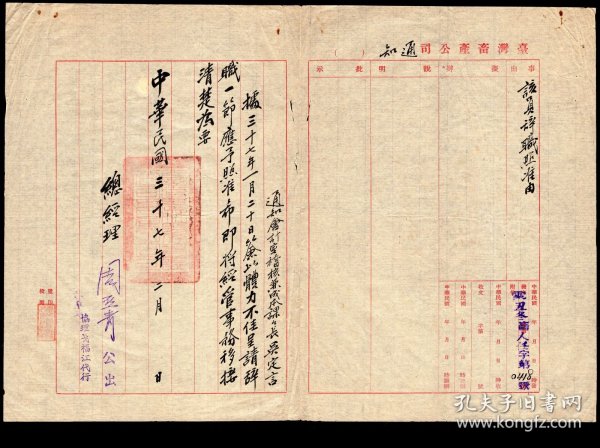 臺灣畜產公司通知
事由
擬辦
號
批示
該員辭職照准由
中華民國 年 月 日 時
中華民國 年 月 日 時
收文 字第 號
中華民國 年 月 日 時
通知會計室稽核兼成本課課長吳定言
據三十七年一月二十日簽兼以體力不任呈請辭
職一節應予照准希即將經管事務移接
清楚為要
中華民國三十七年二月 日
總經理周亞青公出
協理 福江代行
孔夫子旧书网